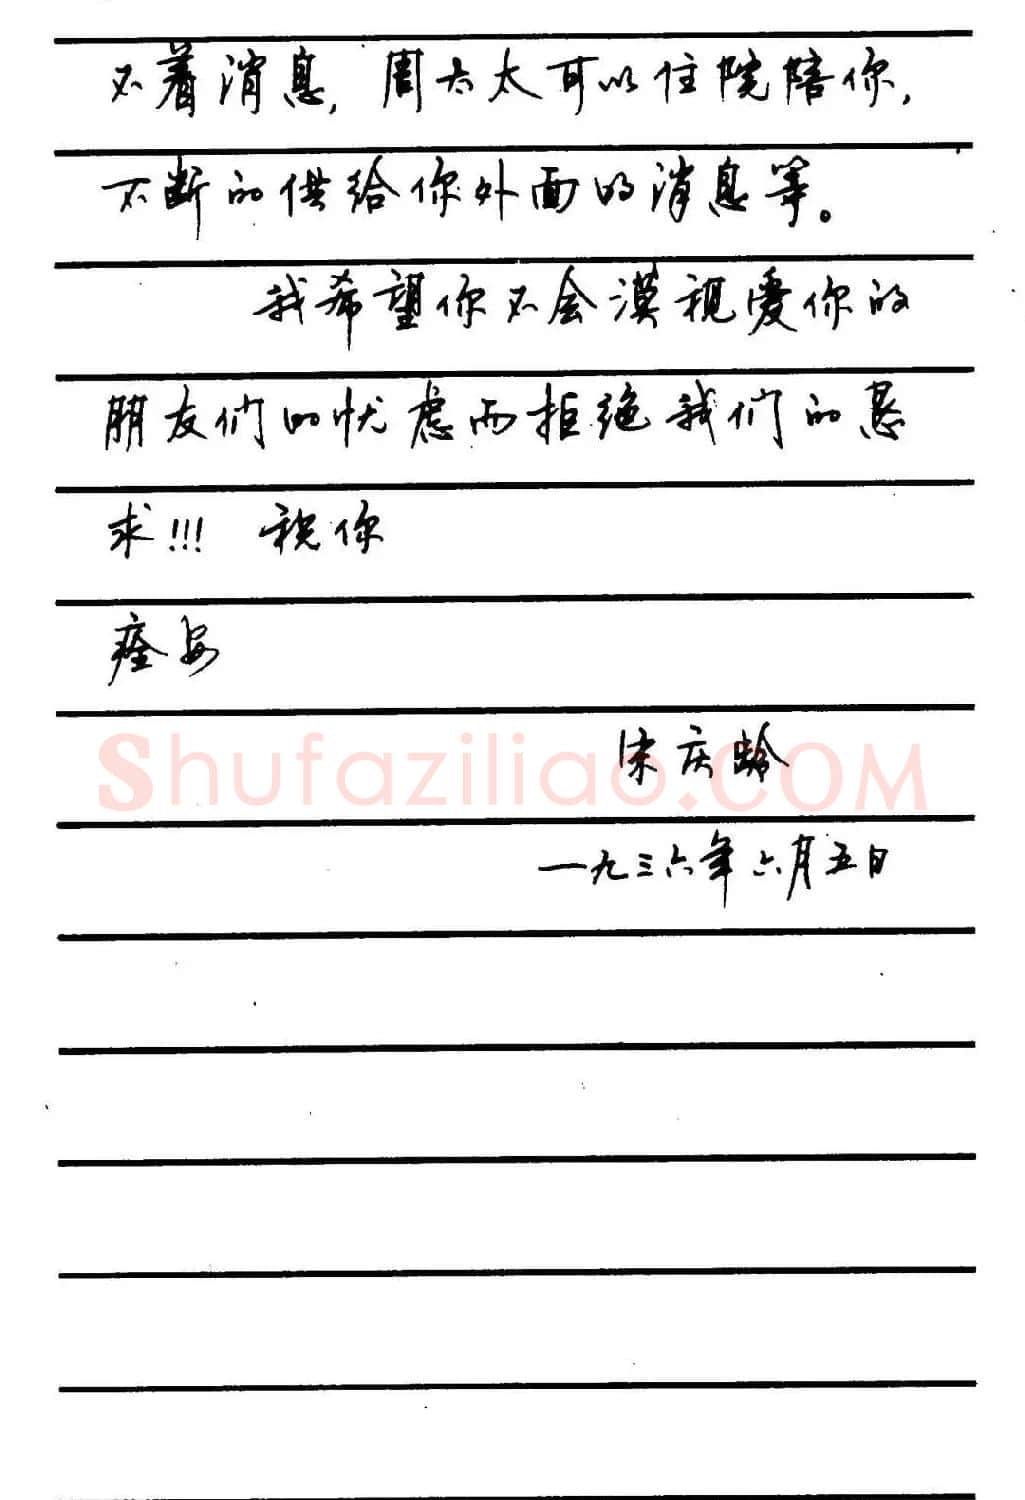 不着消息,周太太可以住院陪你,
不断的供给你外面的消息等。
我希望你不会漠视爱你的
朋友们的忧虑而拒绝我们的恳
求!!! 祝你
痊安
宋庆龄
Shufaziliao.COM
一九三六年六月五日